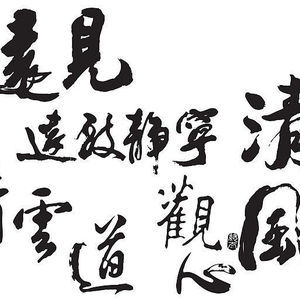 遠見
寧靜致遠
清風
觀心
道
雲